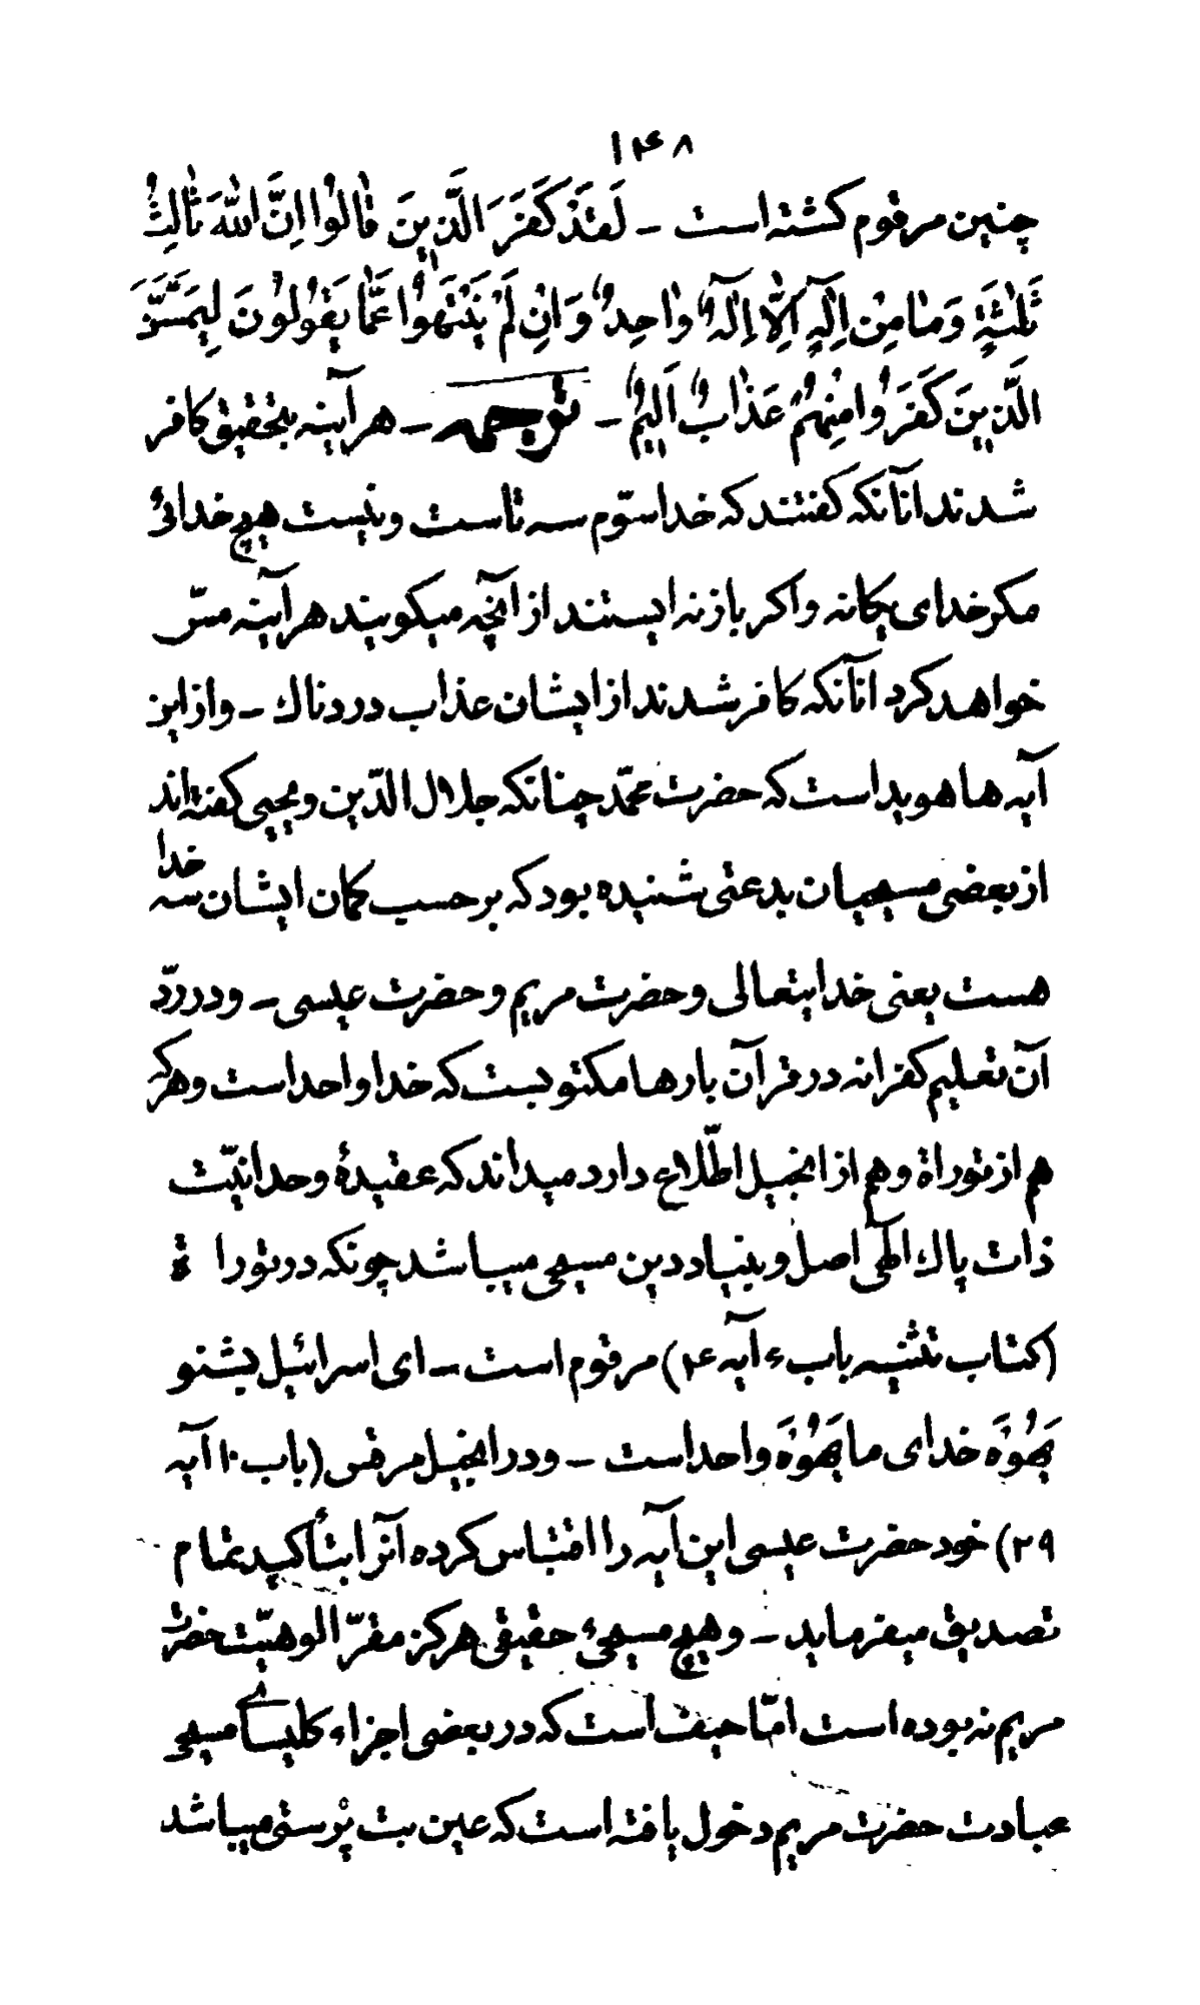 ۱۴۸
چنین مرقوم کشته است ـ لَقَدْ كَفَرَ الَّذِينَ قَالُوا اِنَّ اللهَ ثَالِثُ
ثَلٰثَةٍ وَمَا مِنْ اِلٰهٍ اِلَّا اِلٰهٌ وَاحِدٌ وَاِنْ لَمْ يَنْتَهُوْا عَمَّا يَقُوْلُوْنَ لَيَمَسَّنَّ
الَّذِينَ كَفَرُوا مِنْهُمْ عَذَابٌ اَلِيمٌ ـ ترجمه ـ هرآینه بتحقیق کافر
شدند انآنکه کفتند که خدا سوّم سه تاست و نیست هیچ خدائی
مکر خدای یکانه واکر باز نه ایستند از آنچه میکویند هرآینه مسّ
خواهد کرد انآنکه کافر شدند از ایشان عذاب دردناك ـ واز این
آیه ها هویداست که حضرت محمّد چنانکه جلال الدّین و یحیی کفته اند
از بعضی مسیحیان بدعتی شنیده بود که بر حسب کمان ایشان سه خدا
هست یعنی خدایتعالی و حضرت مریم و حضرت عیسی ـ و در ردّ
آن تعلیم کفرانه در قرآن بارها مکتوبست که خدا واحد است و هرکه
هم از توراة و هم از انجیل اطّلاع دارد میداند که عقیدۀ وحدانیّت
ذات پاك الهی اصل و بنیاد دین مسیحی میباشد چونکه در تورا ة
(کتاب تثنیه باب ۶ آیه ۴) مرقوم است ـ ای اسرائیل بشنو
یَهُوُهَ خدای ما یَهُوُهَ واحد است ـ و در انجیل مرقس (باب ۱۲ آیه
۲۹) خود حضرت عیسی این آیه را اقتباس کرده آنرا بتأکید تمام
تصدیق میفرماید ـ و هیچ مسیحیِ حقیقی هرکز مقرّ الوهیّت حضرت
مریم نه بوده است امّا حیف است که در بعضی اجزاء کلیسای مسیحی
عبادت حضرت مریم دخول یافته است که عین بت پرستی میباشد